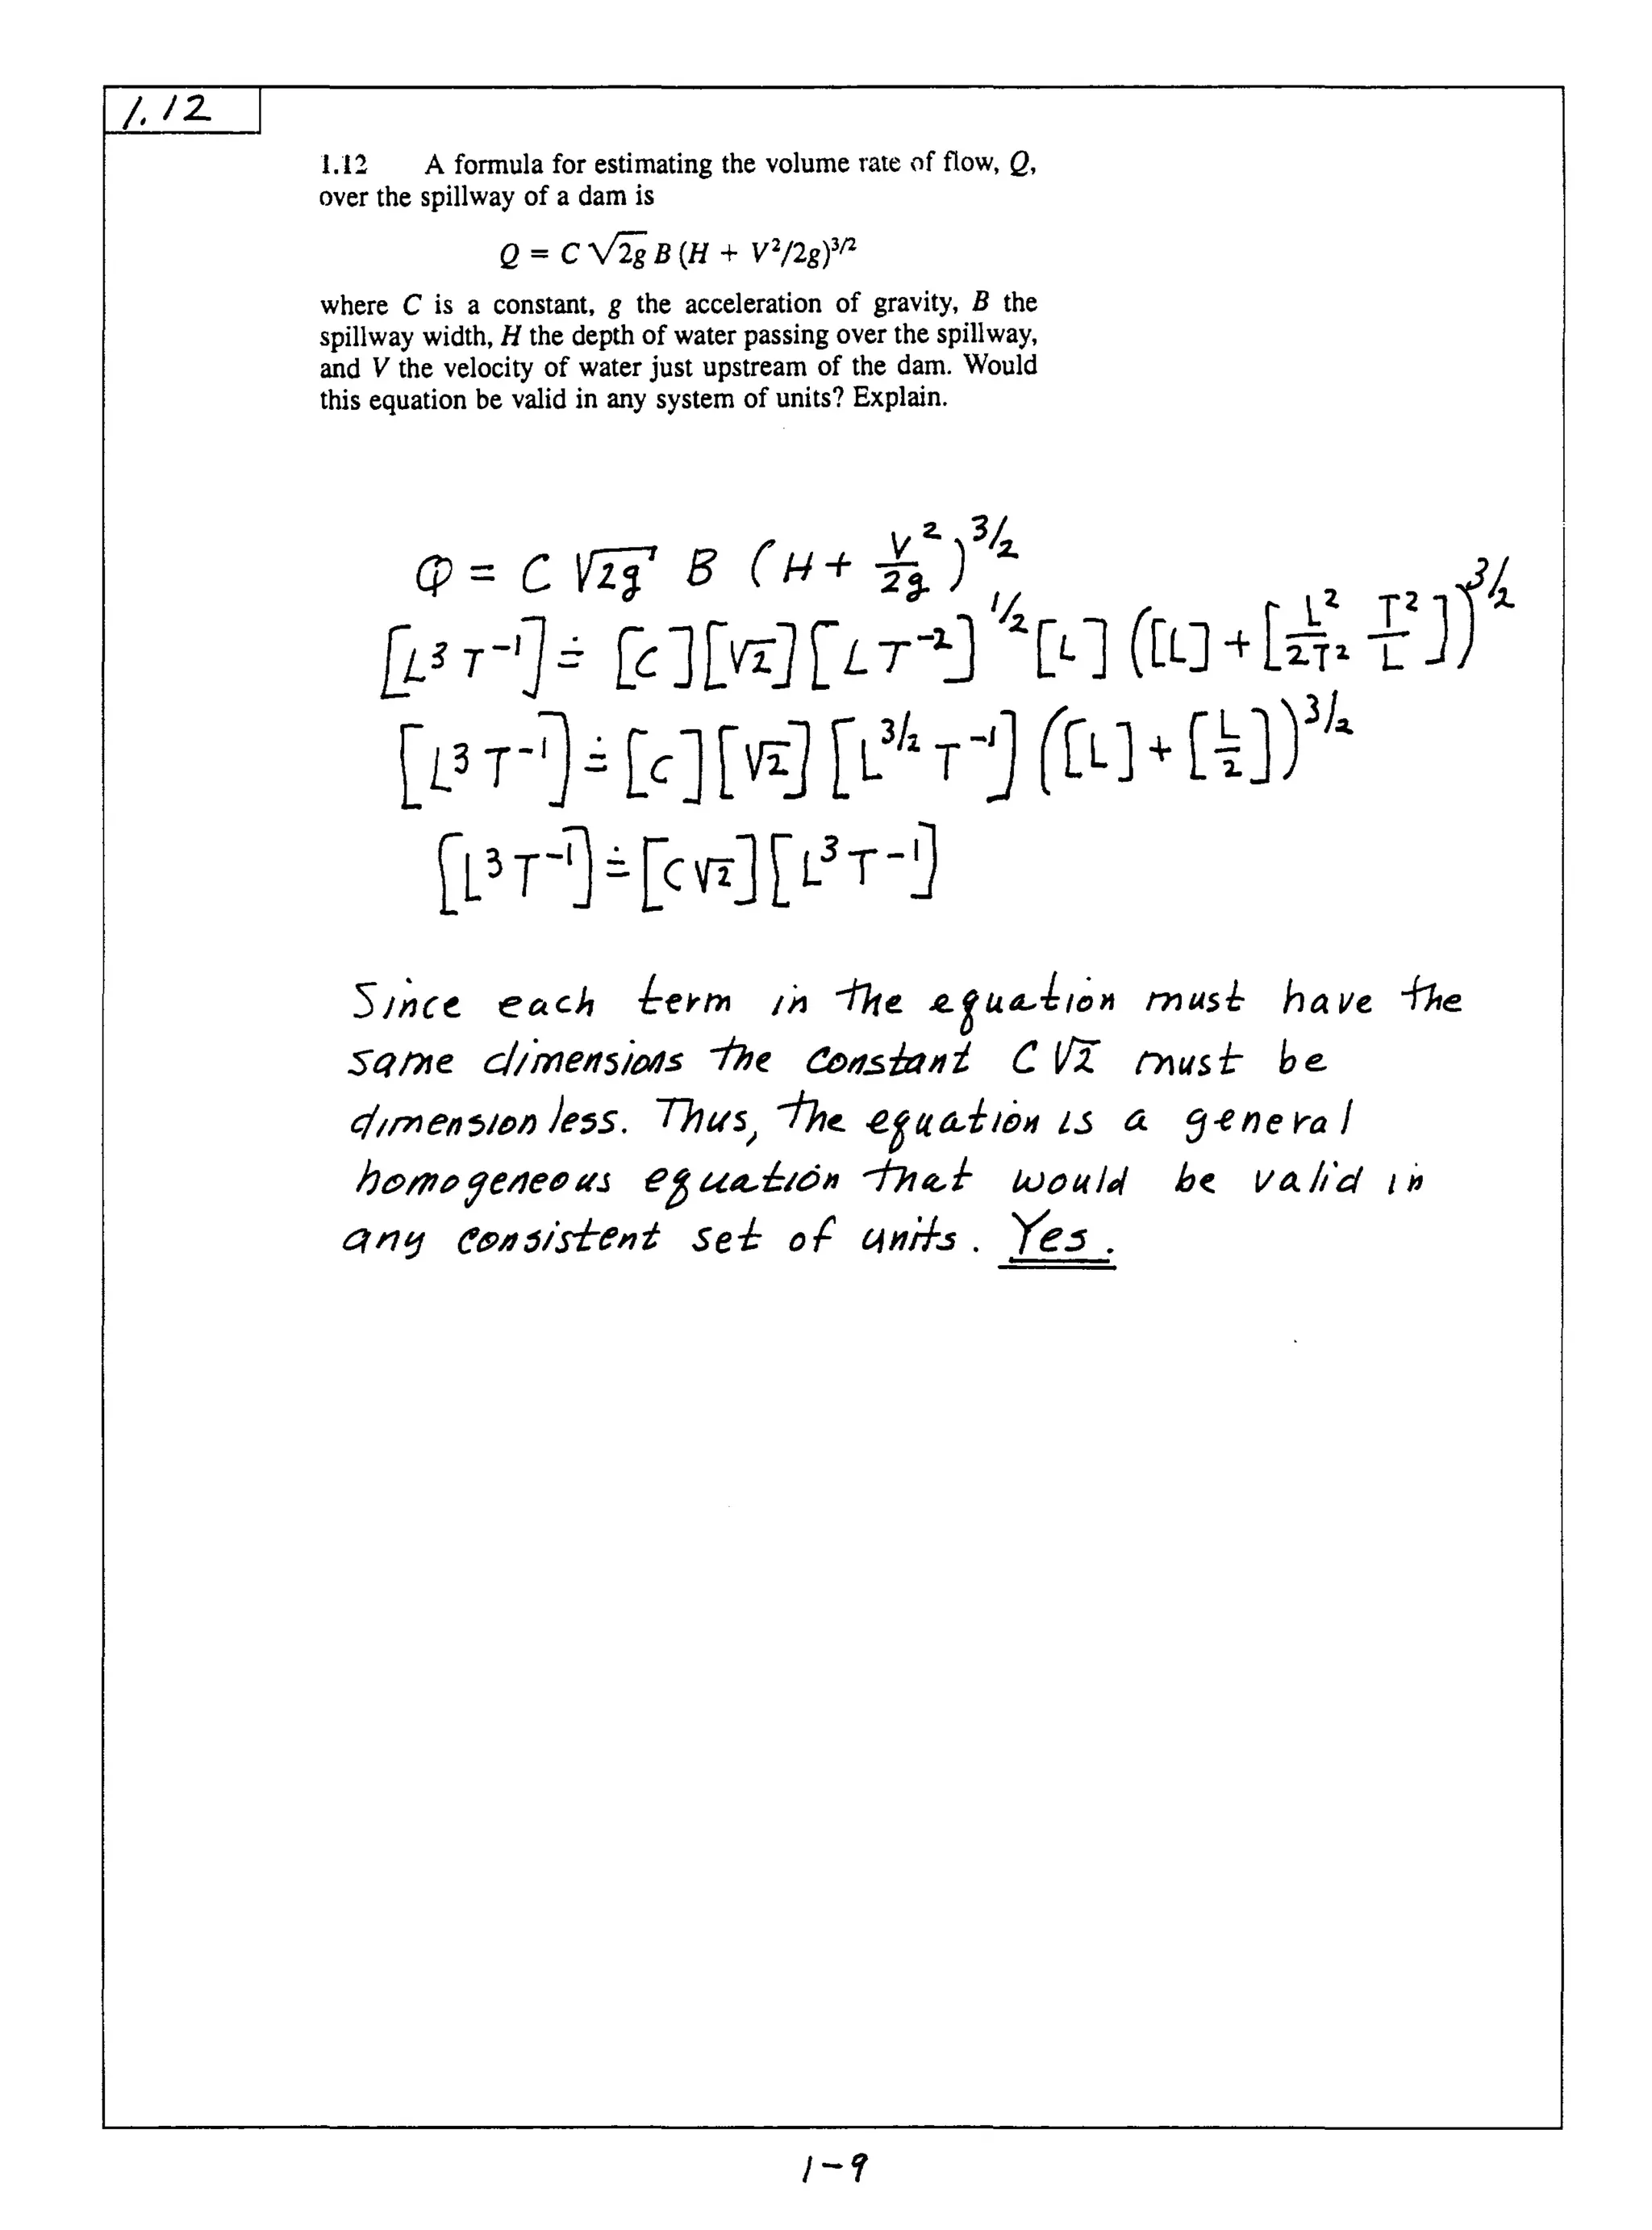 1.12
1.12 A formula for estimating the volume rate of flow, Q,
over the spillway of a dam is
Q = C √2g B (H + V²/2g)^3/2
where C is a constant, g the acceleration of gravity, B the
spillway width, H the depth of water passing over the spillway,
and V the velocity of water just upstream of the dam. Would
this equation be valid in any system of units? Explain.
Q = C √2g B (H + V²/2g)^3/2
[L³ T⁻¹] ≐ [C][√2][L T⁻²]^1/2 [L] ([L] + [L²/2T² T²/L])^3/2
[L³ T⁻¹] ≐ [C][√2][L^3/2 T⁻¹] ([L] + [L/2])^3/2
[L³ T⁻¹] ≐ [C√2][L³ T⁻¹]
Since each term in the equation must have the
same dimensions the constant C√2 must be
dimensionless. Thus, the equation is a general
homogeneous equation that would be valid in
any consistent set of units. Yes.
1-9